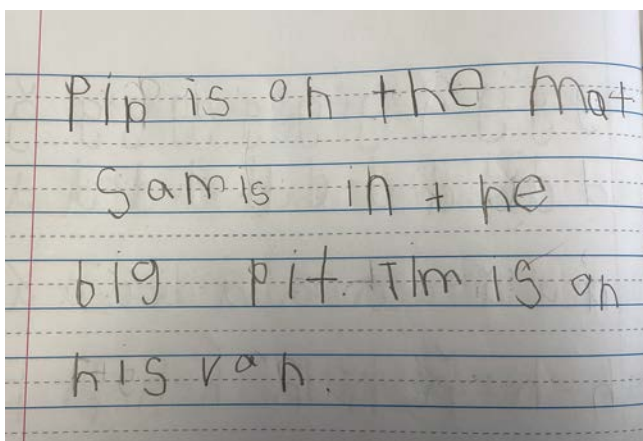 Pip is on the mat
Sam is in the
big pit. Tim is on
his van.